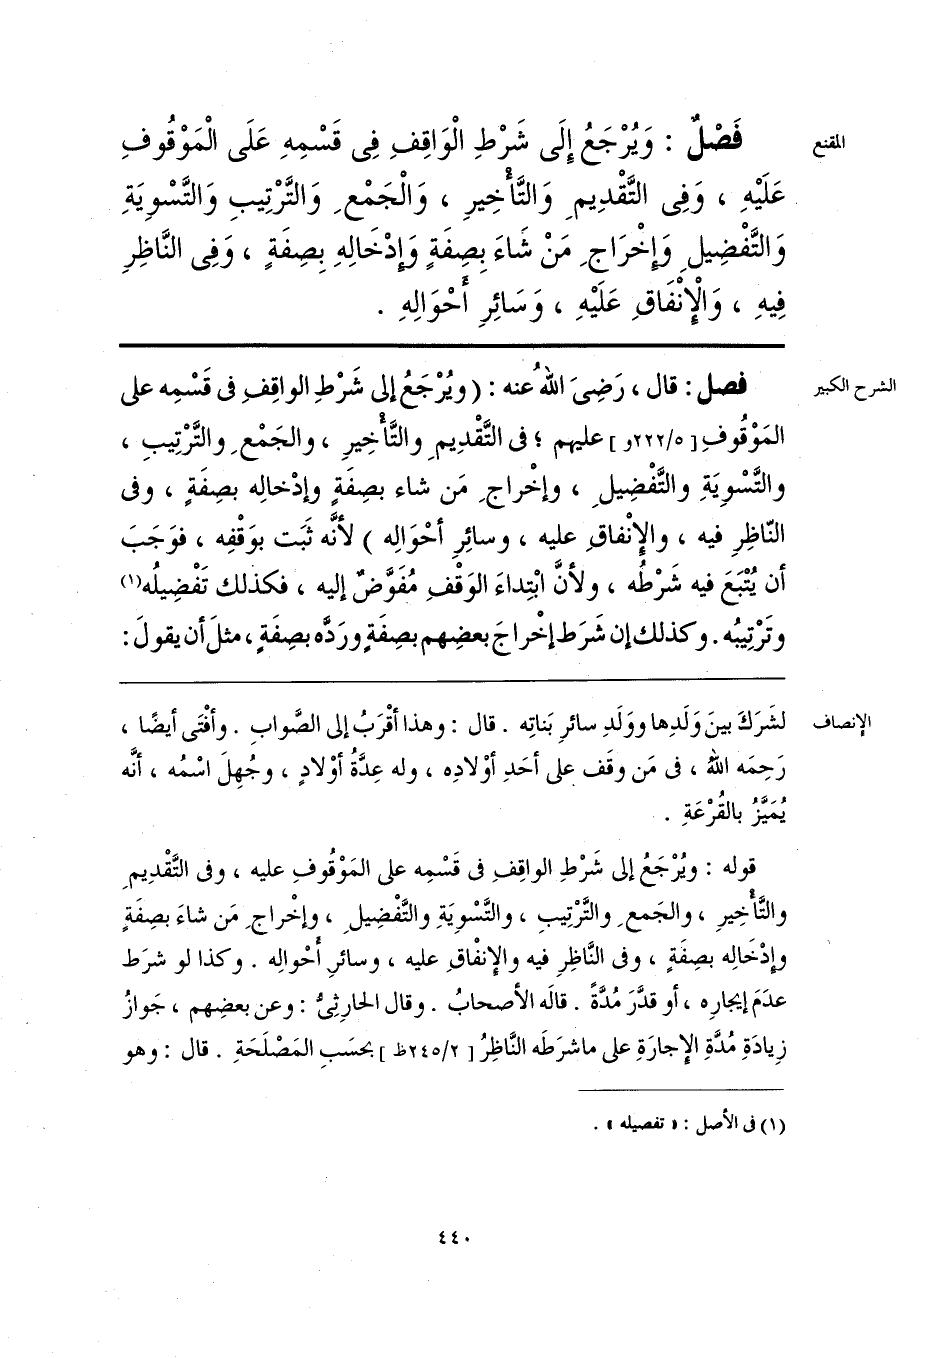 المقنع
فَصْلٌ : وَيُرْجَعُ إِلَى شَرْطِ الْوَاقِفِ فِى قَسْمِهِ عَلَى الْمَوْقُوفِ
عَلَيْهِ ، وَفِى التَّقْدِيمِ وَالتَّأْخِيرِ ، وَالْجَمْعِ وَالتَّرْتِيبِ وَالتَّسْوِيَةِ
وَالتَّفْضِيلِ وَإِخْرَاجِ مَنْ شَاءَ بِصِفَةٍ وَإِدْخَالِهِ بِصِفَةٍ ، وَفِى النَّاظِرِ
فِيهِ ، وَالْإِنْفَاقِ عَلَيْهِ ، وَسَائِرِ أَحْوَالِهِ .
الشرح الكبير
فصل : قال ، رَضِىَ اللهُ عنه : ( ويُرْجَعُ إلى شَرْطِ الواقِفِ فى قَسْمِه على
المَوْقُوفِ [ ٥/٢٢٢و ] عليهم ؛ فى التَّقْدِيمِ والتَّأْخِيرِ ، والجَمْعِ والتَّرْتِيبِ ،
والتَّسْوِيَةِ والتَّفْضِيلِ ، وإخْراجِ مَن شاء بصِفَةٍ وإدْخالِه بصِفَةٍ ، وفى
النّاظِرِ فيه ، والإِنْفاقِ عليه ، وسائِرِ أحْوالِه ) لأنَّه ثَبَت بوَقْفِه ، فوَجَبَ
أن يُتْبَعَ فيه شَرْطُه ، ولأنَّ ابْتِداءَ الوَقْفِ مُفَوَّضٌ إليه ، فكذلك تَفْضِيلُه(١)
وتَرْتِيبُه . وكذلك إن شَرَط إخْراجَ بعضِهم بصِفَةٍ ورَدَّه بصِفَةٍ ، مثلَ أن يقولَ :
الإنصاف
لشَرَكَ بينَ وَلَدِها ووَلَدِ سائرِ بَناتِه . قال : وهذا أقْرَبُ إلى الصَّوابِ . وأفْتَى أيضًا ،
رَحِمَه اللهُ ، فى مَن وقَف على أحَدِ أوْلادِه ، وله عِدَّةُ أوْلادٍ ، وجُهِلَ اسْمُه ، أنَّه
يُمَيَّزُ بالقُرْعَةِ .
قوله : ويُرْجَعُ إلى شَرْطِ الواقِفِ فى قَسْمِه على المَوْقُوفِ عليه ، وفى التَّقْدِيمِ
والتَّأْخِيرِ ، والجَمعِ والتَّرْتِيبِ ، والتَّسْوِيَةِ والتَّفْضِيلِ ، وإخْراجِ مَن شاءَ بصِفَةٍ
وإدْخالِه بصِفَةٍ ، وفى النَّاظِرِ فيه والإنْفاقِ عليه ، وسائرِ أَحْوالِه . وكذا لو شرَط
عدَمَ إيجارِه ، أو قدَّرَ مُدَّةً . قالَه الأصحابُ . وقال الحارِثِىُّ : وعن بعضِهم ، جَوازُ
زِيادَةِ مُدَّةِ الإِجارَةِ على ما شرَطَه النَّاظِرُ [ ٢/٢٤٥ظ ] بحسَبِ المَصْلَحَةِ . قال : وهو
(١) فى الأصل : « تفصيله » .
٤٤٠